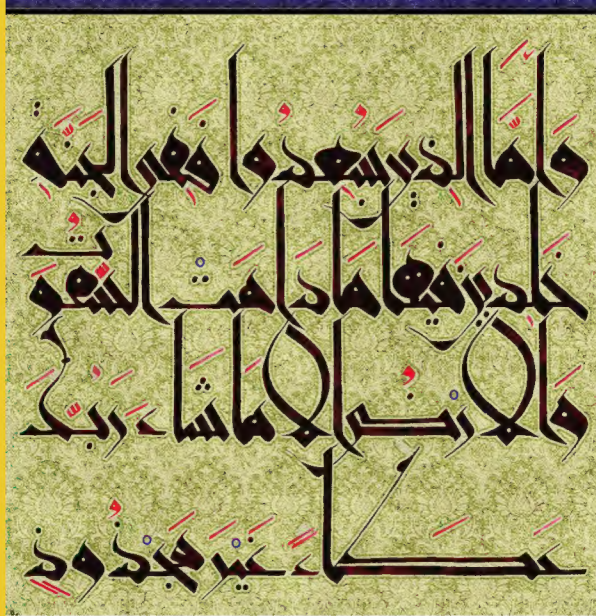 وَأَمَّا الَّذِينَ سُعِدُوا فَفِي الْجَنَّةِ
خَلِدِينَ فِيهَا مَا دَامَتْ السَّمَوَتُ
وَالْأَرْضُ إِلَّا مَا شَاءَ رَبُّكَ
عَطَاءً غَيْرَ مَجْذُوذٍ